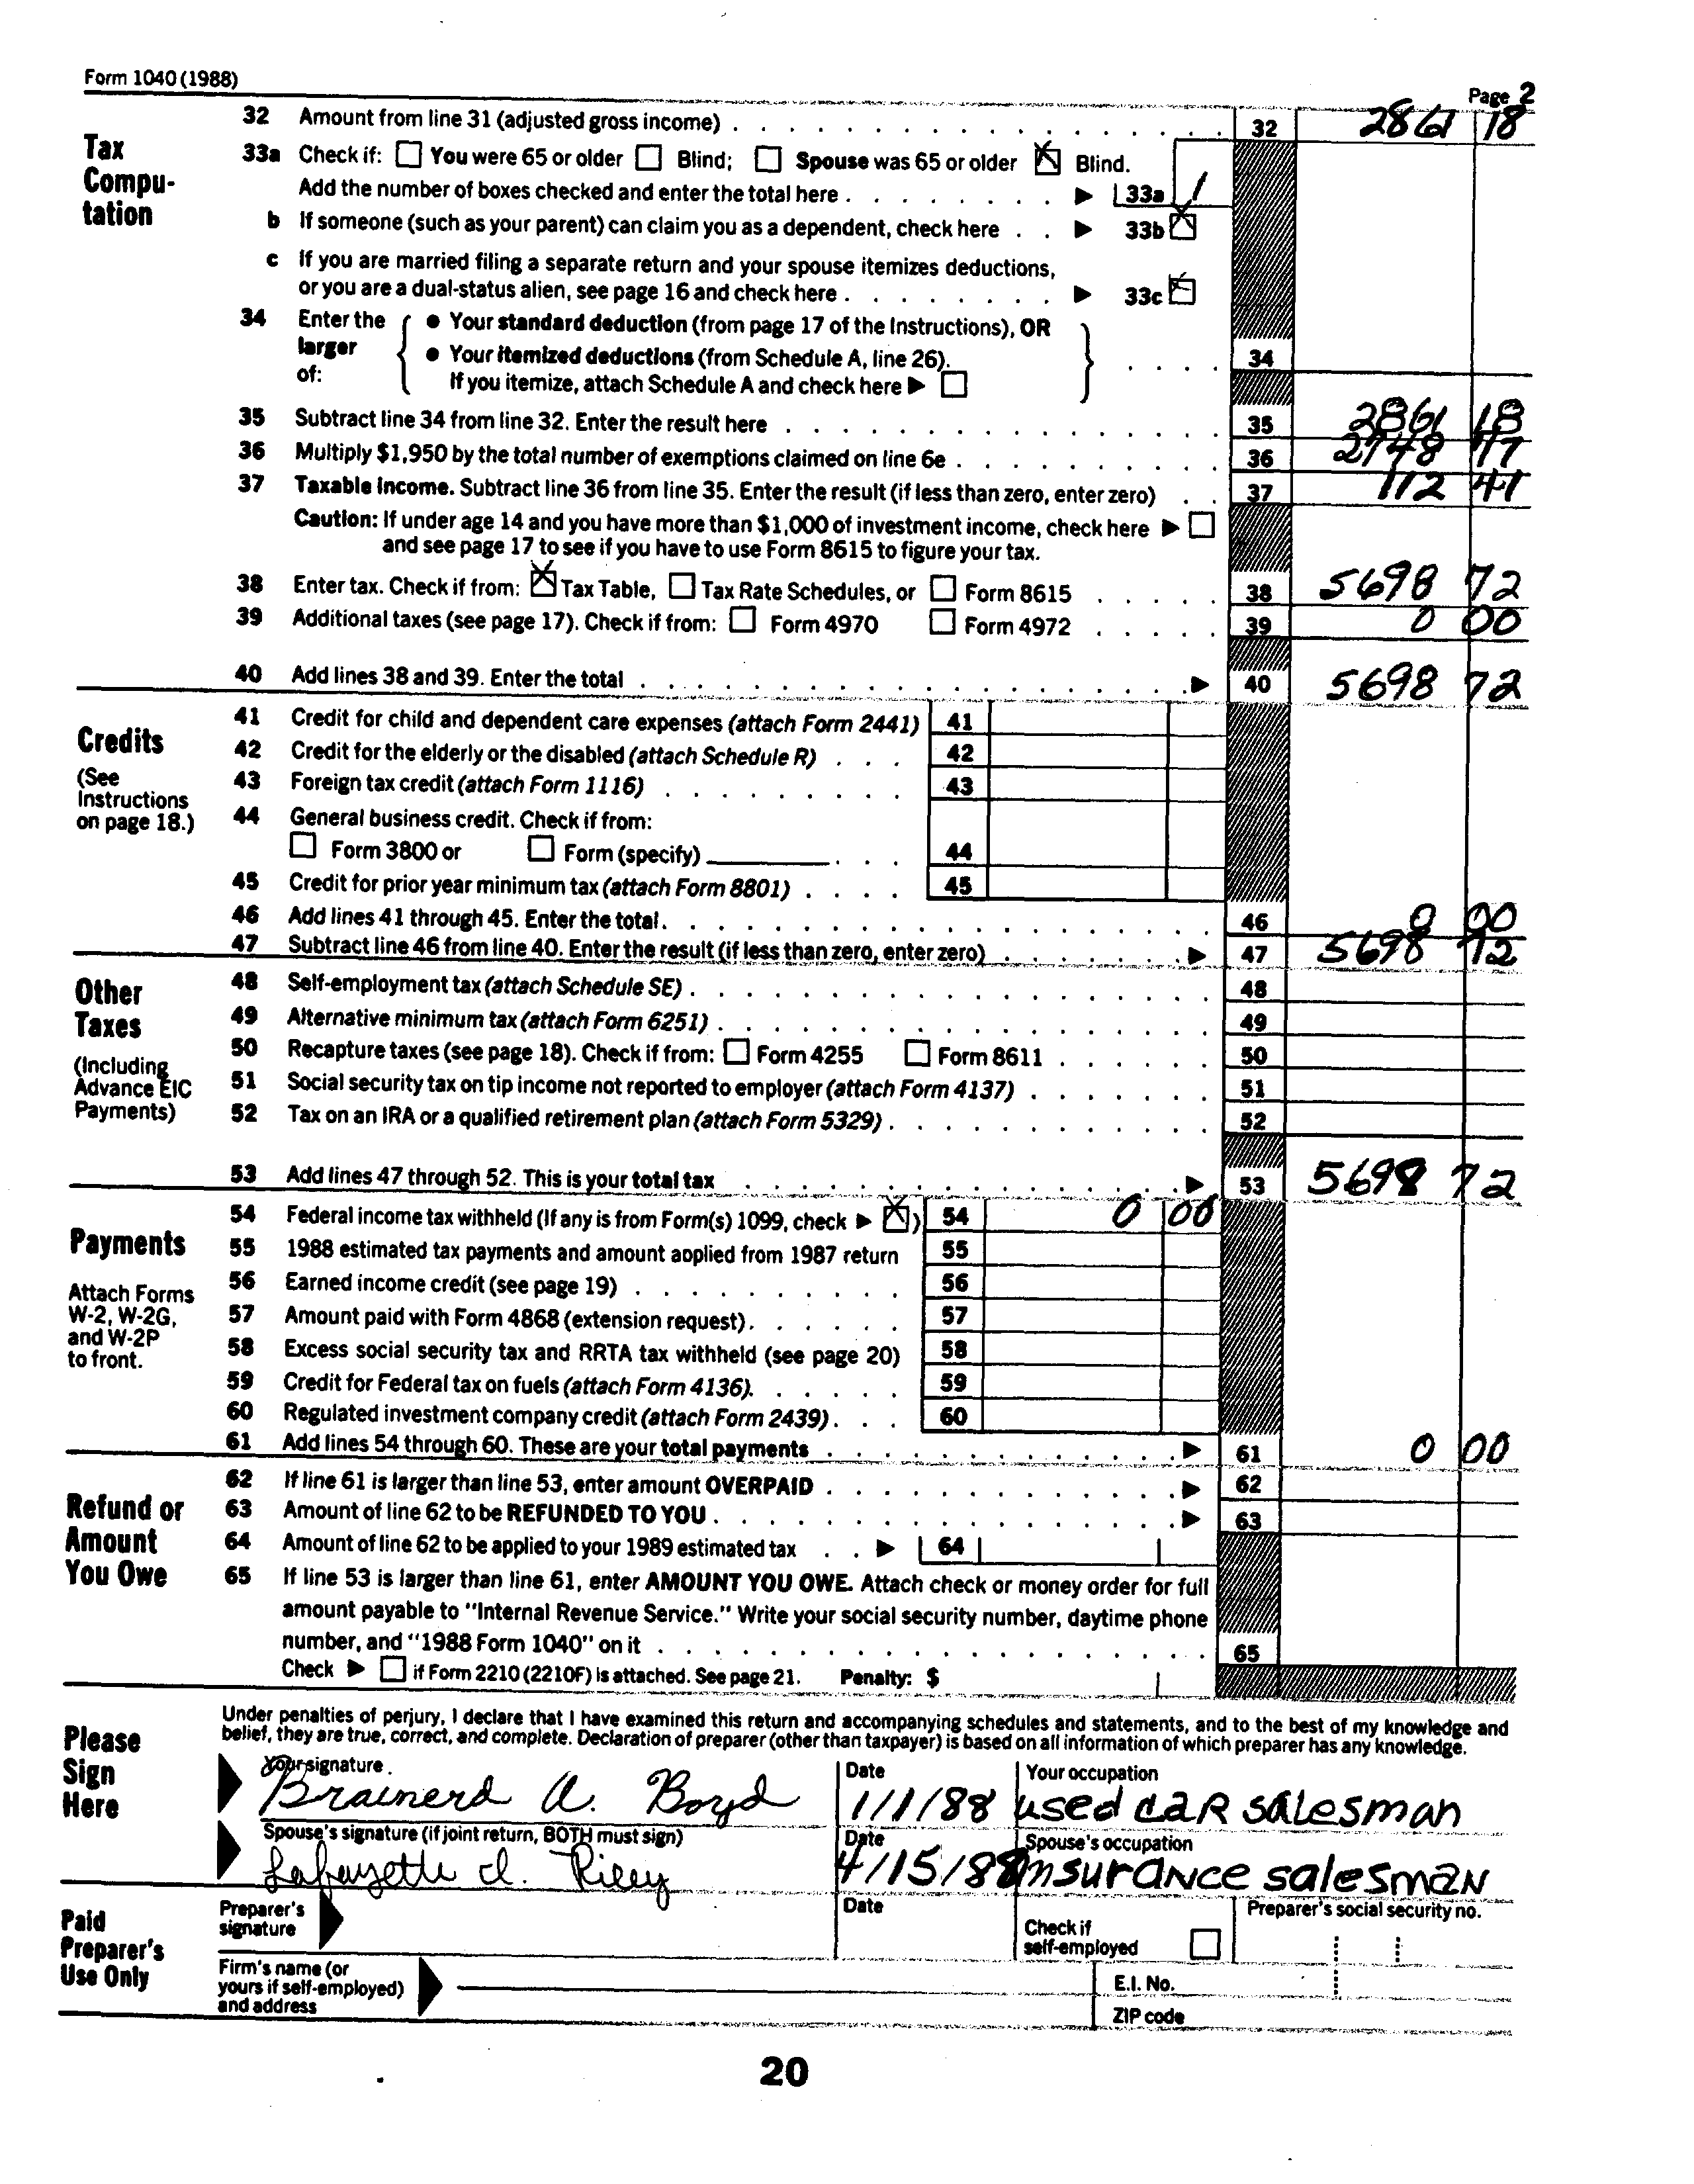 Form 1040 (1988) Page 2
Tax Compu-tation
32 Amount from line 31 (adjusted gross income) . . . 32 2861 18
33a Check if: ☐ You were 65 or older ☐ Blind; ☐ Spouse was 65 or older ☒ Blind.
Add the number of boxes checked and enter the total here . . . ▶ 33a 1
b If someone (such as your parent) can claim you as a dependent, check here . . ▶ 33b ☒
c If you are married filing a separate return and your spouse itemizes deductions,
or you are a dual-status alien, see page 16 and check here . . . ▶ 33c ☒
34 Enter the larger of: { ● Your standard deduction (from page 17 of the Instructions), OR
● Your itemized deductions (from Schedule A, line 26).
If you itemize, attach Schedule A and check here ▶ ☐ } . . . . 34
35 Subtract line 34 from line 32. Enter the result here . . . 35 2861 18
36 Multiply $1,950 by the total number of exemptions claimed on line 6e . . . 36 2748 77
37 Taxable income. Subtract line 36 from line 35. Enter the result (if less than zero, enter zero) . . 37 112 41
Caution: If under age 14 and you have more than $1,000 of investment income, check here ▶ ☐
and see page 17 to see if you have to use Form 8615 to figure your tax.
38 Enter tax. Check if from: ☒ Tax Table, ☐ Tax Rate Schedules, or ☐ Form 8615 . . . 38 5698 72
39 Additional taxes (see page 17). Check if from: ☐ Form 4970 ☐ Form 4972 . . . 39 0 00
40 Add lines 38 and 39. Enter the total . . . ▶ 40 5698 72
Credits
(See Instructions on page 18.)
41 Credit for child and dependent care expenses (attach Form 2441) 41
42 Credit for the elderly or the disabled (attach Schedule R) . . . 42
43 Foreign tax credit (attach Form 1116) . . . 43
44 General business credit. Check if from:
☐ Form 3800 or ☐ Form (specify) ________ . . . 44
45 Credit for prior year minimum tax (attach Form 8801) . . . . 45
46 Add lines 41 through 45. Enter the total . . . 46 0 00
47 Subtract line 46 from line 40. Enter the result (if less than zero, enter zero) . . . ▶ 47 5698 72
Other Taxes
(Including Advance EIC Payments)
48 Self-employment tax (attach Schedule SE) . . . 48
49 Alternative minimum tax (attach Form 6251) . . . 49
50 Recapture taxes (see page 18). Check if from: ☐ Form 4255 ☐ Form 8611 . . . 50
51 Social security tax on tip income not reported to employer (attach Form 4137) . . . 51
52 Tax on an IRA or a qualified retirement plan (attach Form 5329) . . . 52
53 Add lines 47 through 52. This is your total tax . . . ▶ 53 5698 72
Payments
Attach Forms W-2, W-2G, and W-2P to front.
54 Federal income tax withheld (If any is from Form(s) 1099, check ▶ ☒ ) 54 0 00
55 1988 estimated tax payments and amount applied from 1987 return 55
56 Earned income credit (see page 19) . . . 56
57 Amount paid with Form 4868 (extension request) . . . 57
58 Excess social security tax and RRTA tax withheld (see page 20) 58
59 Credit for Federal tax on fuels (attach Form 4136) . . . 59
60 Regulated investment company credit (attach Form 2439) . . . 60
61 Add lines 54 through 60. These are your total payments . . . ▶ 61 0 00
Refund or Amount You Owe
62 If line 61 is larger than line 53, enter amount OVERPAID . . . ▶ 62
63 Amount of line 62 to be REFUNDED TO YOU . . . ▶ 63
64 Amount of line 62 to be applied to your 1989 estimated tax . . ▶ 64
65 If line 53 is larger than line 61, enter AMOUNT YOU OWE. Attach check or money order for full
amount payable to "Internal Revenue Service." Write your social security number, daytime phone
number, and "1988 Form 1040" on it . . . 65
Check ▶ ☐ if Form 2210 (2210F) is attached. See page 21. Penalty: $
Please Sign Here
Under penalties of perjury, I declare that I have examined this return and accompanying schedules and statements, and to the best of my knowledge and
belief, they are true, correct, and complete. Declaration of preparer (other than taxpayer) is based on all information of which preparer has any knowledge.
Your signature Date Your occupation
Brainerd A. Boyd 1/1/88 used car salesman
Spouse's signature (if joint return, BOTH must sign) Date Spouse's occupation
Lafayette I. Riley 4/15/88 insurance salesman
Paid Preparer's Use Only
Preparer's signature Date Check if self-employed ☐ Preparer's social security no.
Firm's name (or yours if self-employed) and address E.I. No.
ZIP code
20